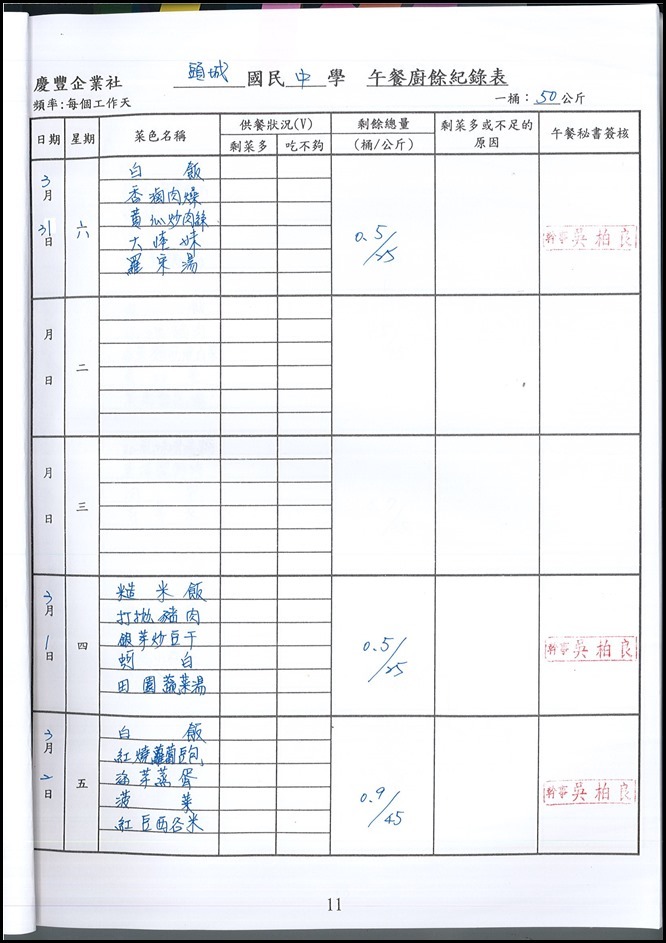 慶豐企業社 頭城 國民 中 學 午餐廚餘紀錄表
頻率:每個工作天 一桶: 50 公斤
日期 星期 菜色名稱 供餐狀況(V) 剩餘總量 剩菜多或不足的 午餐秘書簽核
剩菜多 吃不夠 (桶/公斤) 原因
3月31日 六 0.5/25 幹事 吳柏良
白飯
香滷肉燥
黃瓜炒肉絲
羅宋湯
月 日 二
月 日 三
3月1日 四 0.5/25 幹事 吳柏良
糙米飯
打拋豬肉
銀芽炒豆干
蚵白
田園蔬菜湯
3月2日 五 0.9/45 幹事 吳柏良
白飯
紅燒蘿蔔豆包
海芽蒸蛋
菠菜
紅豆西谷米
11